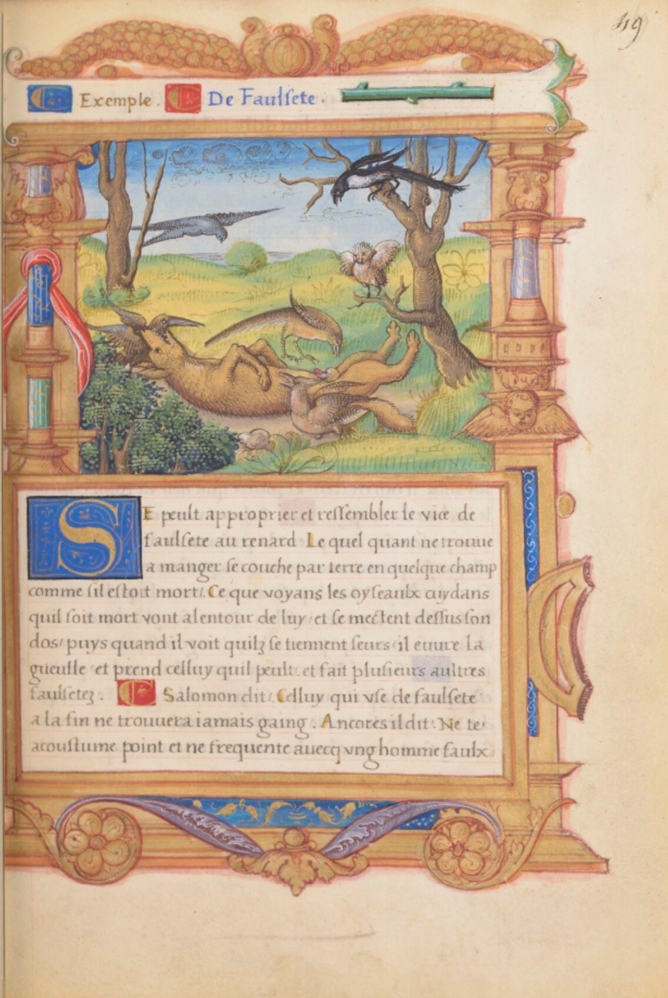 49
Exemple. De Faulsete.
SE peult approprier et ressembler le vice de
faulsete au renard Le quel quant ne trouue
a manger se couche par terre en quelque champ
comme sil estoit mort. Ce que voyans les oyseaulx cuydans
quil soit mort vont alentour de luy et se mectent dessus son
dos/ puys quand il voit quilz se tiennent seurs: il euure la
gueulle et prend celluy quil peult: et fait plusieurs aultres
faulsetez. Salomon dit: Celluy qui vse de faulsete
a la fin ne trouuera iamais gaing. Ancores il dit: Ne te
acoustume point et ne frequente auecq vng homme faulx